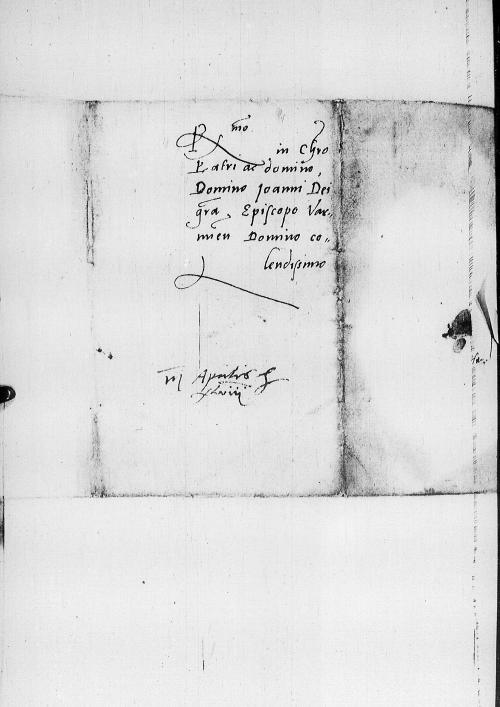 R mo in Chro
Patri ac domino,
Domino Joanni Dei
gra Episcopo Var-
mien Domino co-
lendissimo
Aprilis